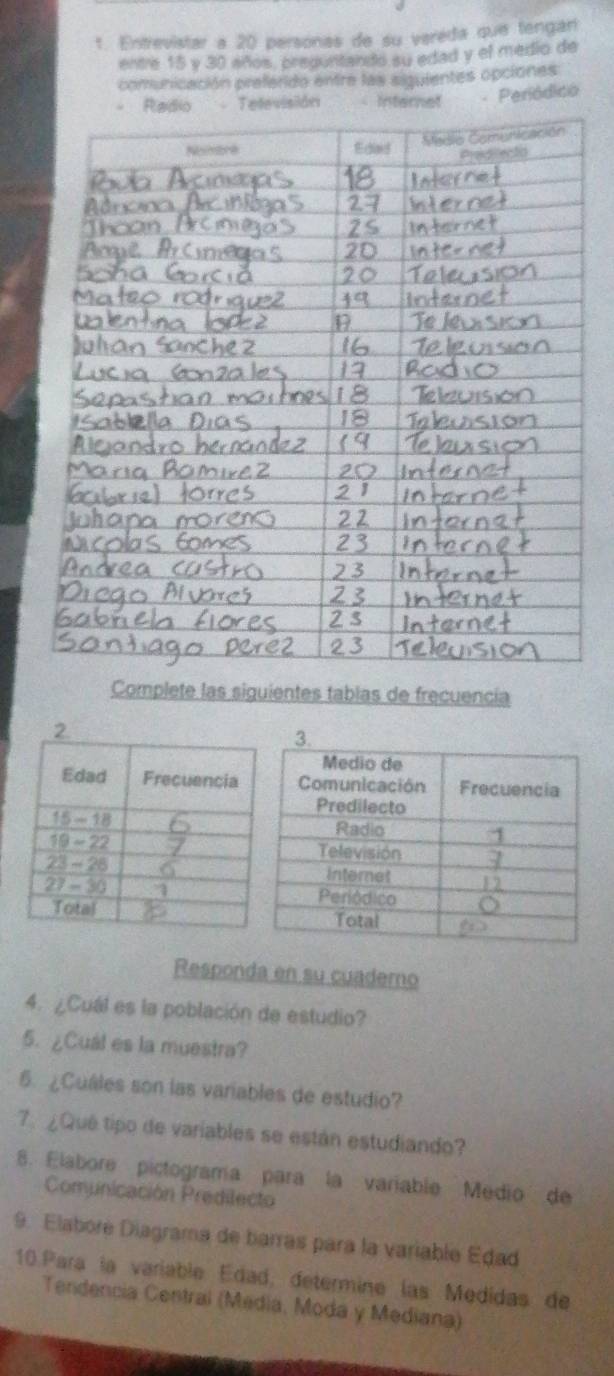 1. Entrevistar a 20 personas de su vereda que tengan
entre 15 y 30 años, preguntando su edad y el medio de
comunicación preferido entre las siguientes opciones:
- Radio - Televisión - Internet - Periódico
Nombre Edad Medio Comunicación
Predilecto
Arcinegas 18 Internet
Adriana Arciniogas 27 Internet
Jhoan Arcinegas 25 internet
Angie Arcinegas 20 internet
Garcia 20 Television
Mateo rodriguez 19 internet
valentina lopez Television
Julian Sanchez 16 Television
Lucia Gonzales 17 Radio
Sebastian martines 18 Television
isabella Dias 18 Television
Alejandro hernandez 19 Television
Maria Ramirez 20 internet
Gabriel torres 21 internet
Johana moreno 22 internet
Nicolas Gomes 23 internet
Andrea castro 23 internet
Diego Alvares 23 internet
Gabriela flores 23 internet
Santiago perez 23 Television
Complete las siguientes tablas de frecuencia
2. 3.
Edad Frecuencia
Medio de
Comunicación
Predilecto Frecuencia
15 - 18 6
19 - 22 7
23 - 26 6
27 - 30 1
Total
Radio 1
Televisión 7
Internet 12
Periódico 0
Total
Responda en su cuaderno
4. ¿Cuál es la población de estudio?
5. ¿Cuál es la muestra?
6. ¿Cuáles son las variables de estudio?
7. ¿Qué tipo de variables se están estudiando?
8. Elabore pictograma para la variable Medio de
Comunicación Predilecto
9. Elabore Diagrama de barras para la variable Edad
10.Para la variable Edad, determine las Medidas de
Tendencia Central (Media, Moda y Mediana)